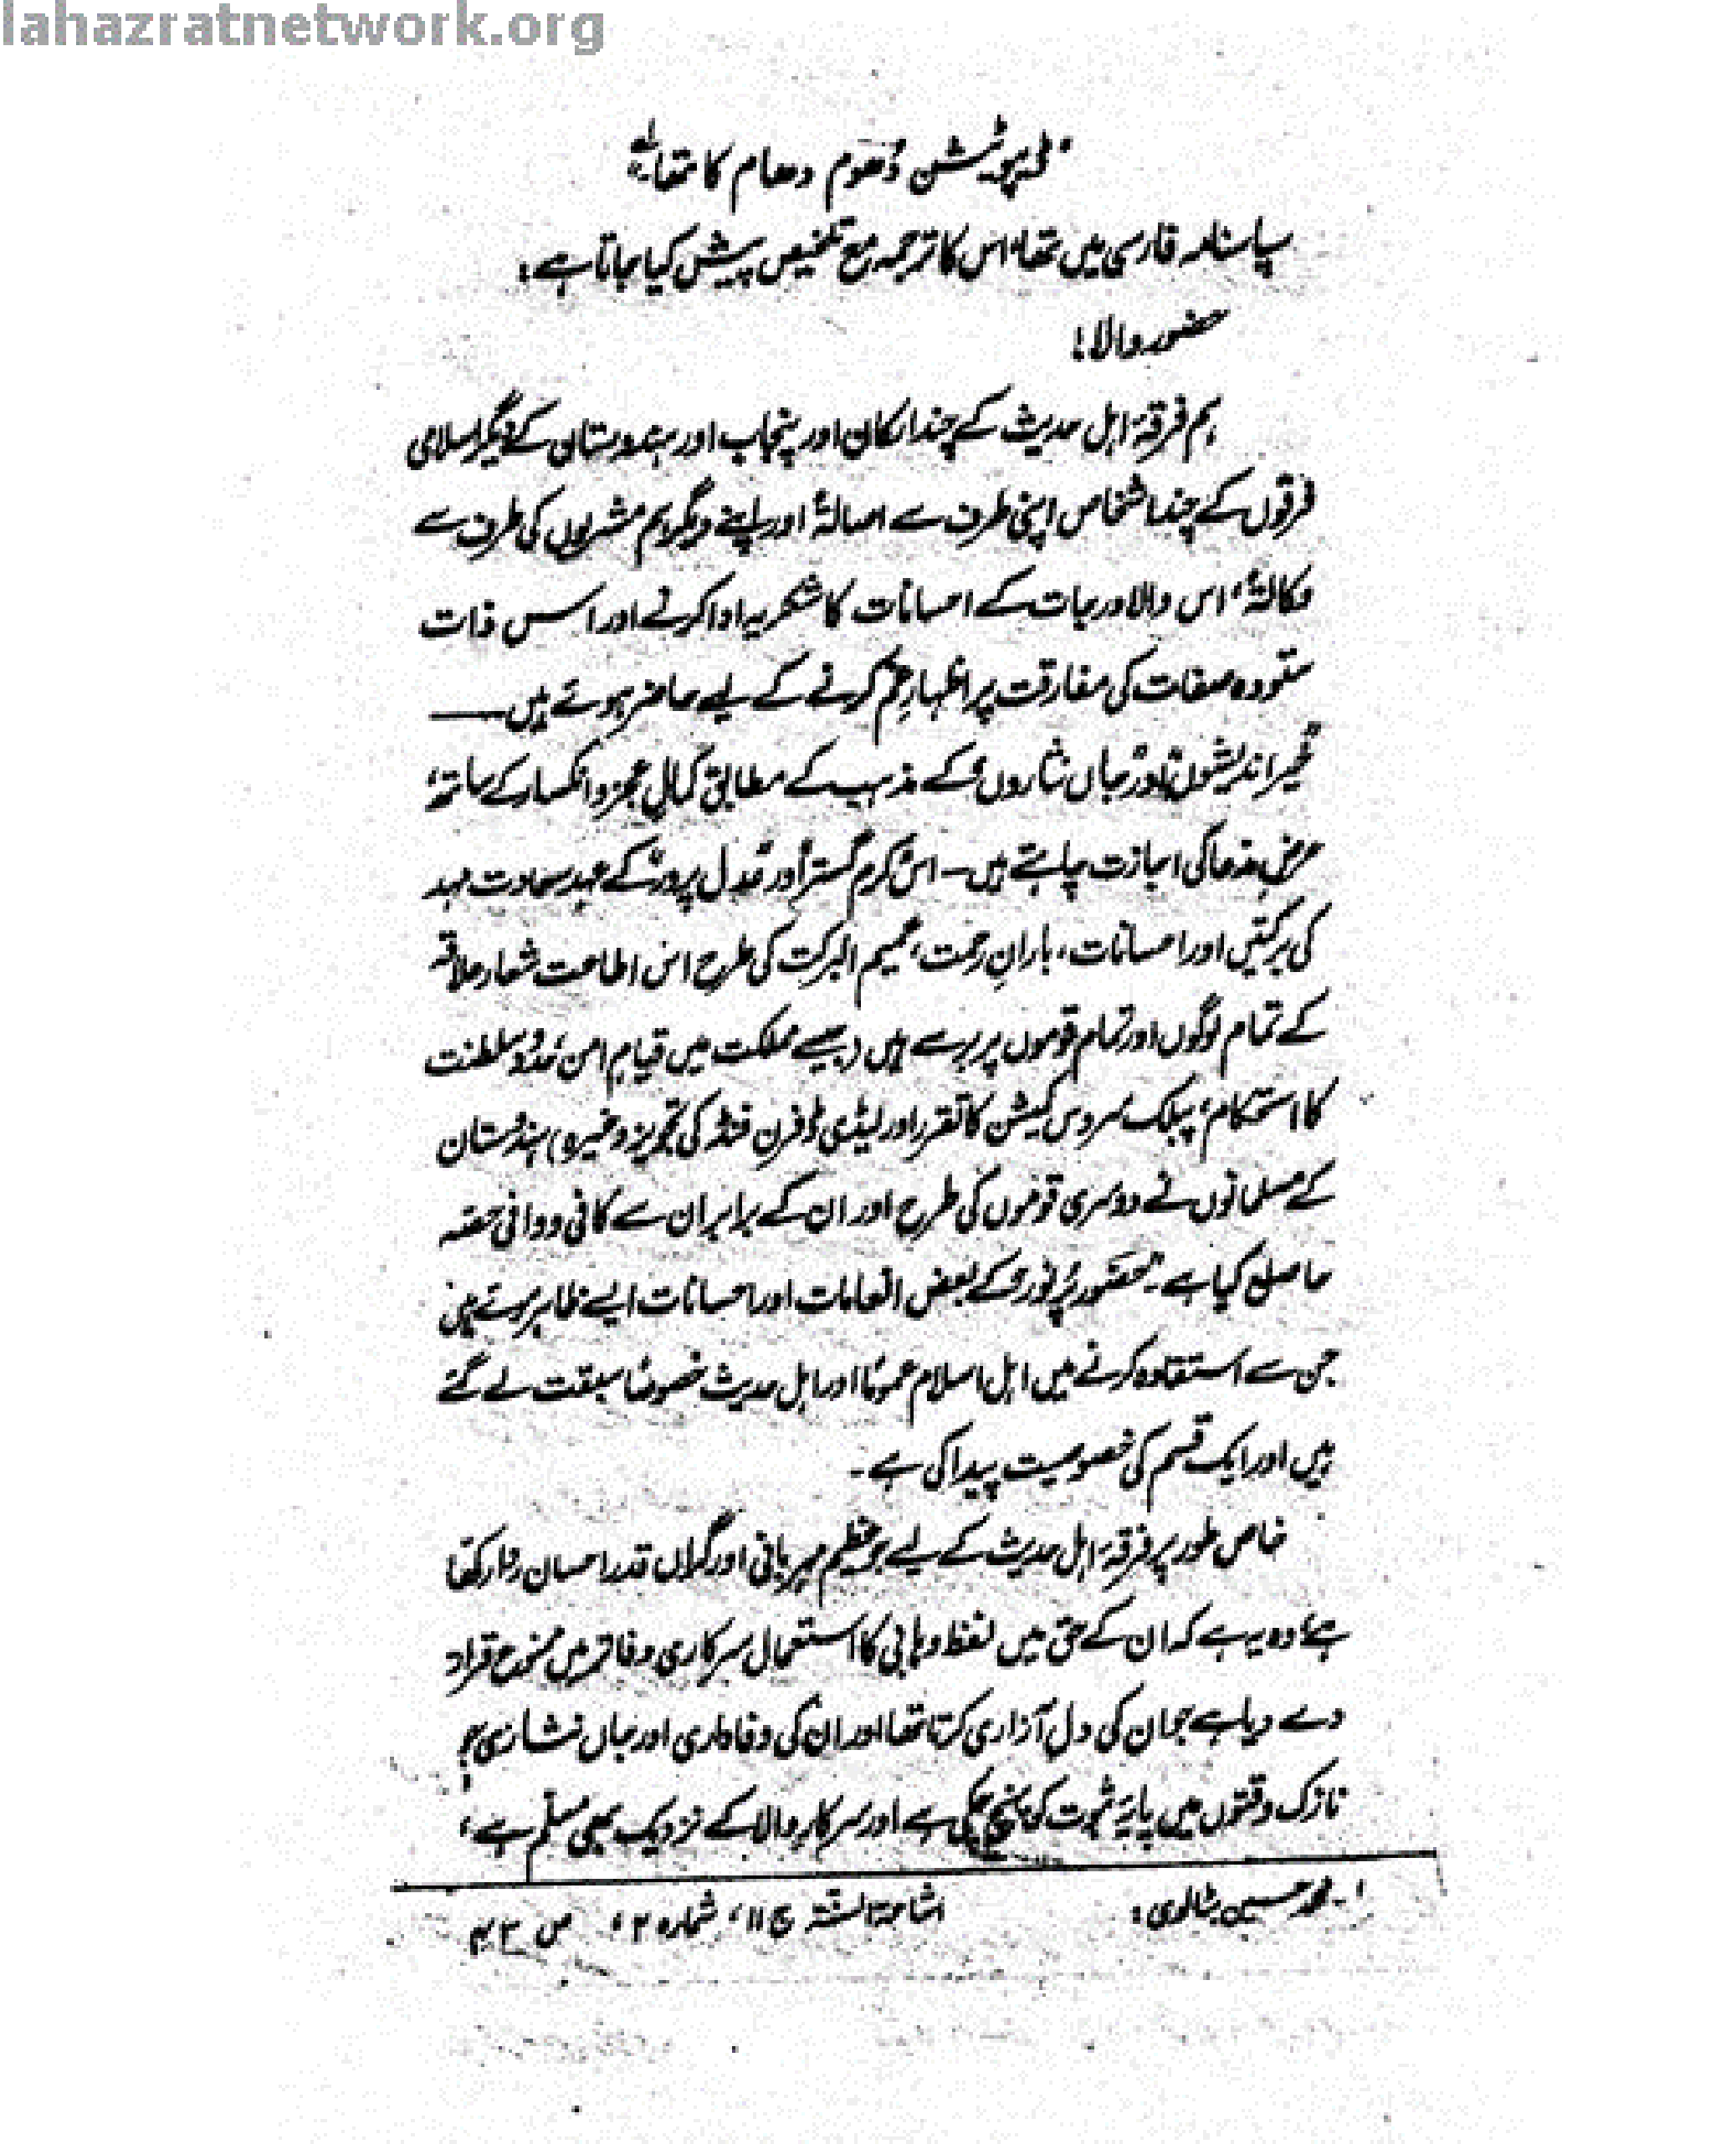 lahazratnetwork.org
ڈیپوٹیشن دُھوم دھام کا تھا؎
سپاسنامہ فارسی میں تھا، اس کا ترجمہ مع تلخیص پیش کیا جاتا ہے:
حضور والا!
ہم فرقۂ اہل حدیث کے چند ارکان اور پنجاب اور ہندوستان کے دیگر اسلامی
فرقوں کے چند اشخاص اپنی طرف سے اصالۃً اور اپنے دیگر ہم مشربوں کی طرف سے
وکالۃً، اس والا درجات کے احسانات کا شکریہ ادا کرنے اور اس ذات
ستودہ صفات کی مفارقت پر اظہارِ غم کرنے کے لیے حاضر ہوئے ہیں ——
خیر اندیشوں اور جاں نثاروں کے مذہب کے مطابق کمالِ عجز و انکسار کے ساتھ،
عرض مدعا کی اجازت چاہتے ہیں۔ اس کرم گستر اور عدل پرور کے عہد سعادت مہد
کی برکتیں اور احسانات، بارانِ رحمت، عمیم البرکت کی طرح اس اطاعت شعار علاقہ
کے تمام لوگوں اور تمام قوموں پر برسے ہیں (جیسے مملکت میں قیامِ امن، حدود سلطنت
کا استحکام، پبلک سروس کمیشن کا تقرر اور لیڈی ڈفرن فنڈ کی تجویز وغیرہ) ہندوستان
کے مسلمانوں نے دوسری قوموں کی طرح اور ان کے برابر ان سے کافی و وافی حصہ
حاصل کیا ہے۔ حضور پُرنور کے بعض انعامات اور احسانات ایسے ظاہر ہوئے ہیں
جن سے استفادہ کرنے میں اہل اسلام عموماً اور اہل حدیث خصوصاً سبقت لے گئے
ہیں اور ایک قسم کی خصوصیت پیدا کی ہے۔
خاص طور پر فرقۂ اہل حدیث کے لیے جو عظیم مہربانی اور گراں قدر احسان روا رکھا
ہے، وہ یہ ہے کہ ان کے حق میں لفظ وہابی کا استعمال سرکاری دفاتر میں ممنوع قرار
دے دیا ہے جو ان کی دل آزاری کرتا تھا اور ان کی وفاداری اور جاں نثاری جو
نازک وقتوں میں پایۂ ثبوت کو پہنچ چکی ہے اور سرکارِ والا کے نزدیک بھی مسلّم ہے،
۱۔ محمد حسین بٹالوی: اشاعۃ السنۃ ج ۱۱، شمارہ ۲، ص